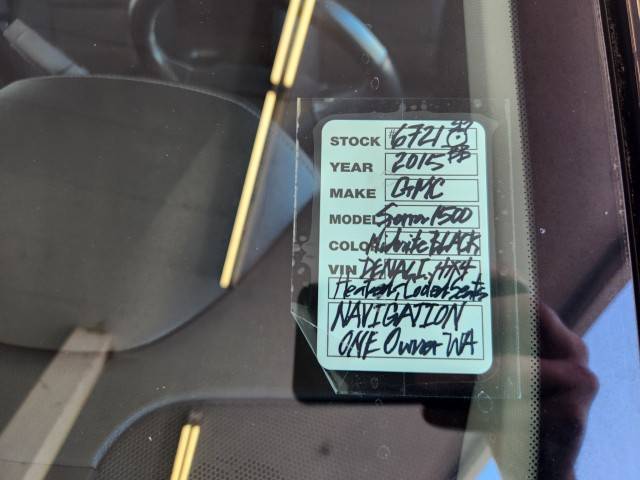 STOCK #6721
YEAR 2015
MAKE GMC
MODEL Sierra 1500
COLO Midnite BLACK
VIN DENALI, 4x4
Heated, Cooled Seats
NAVIGATION
ONE Owner WA